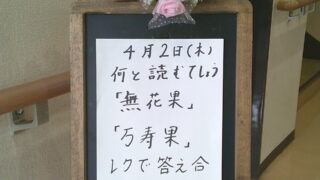 4月2日(木)
何と読むでしょう
「無花果」
「万寿果」
レクで答え合